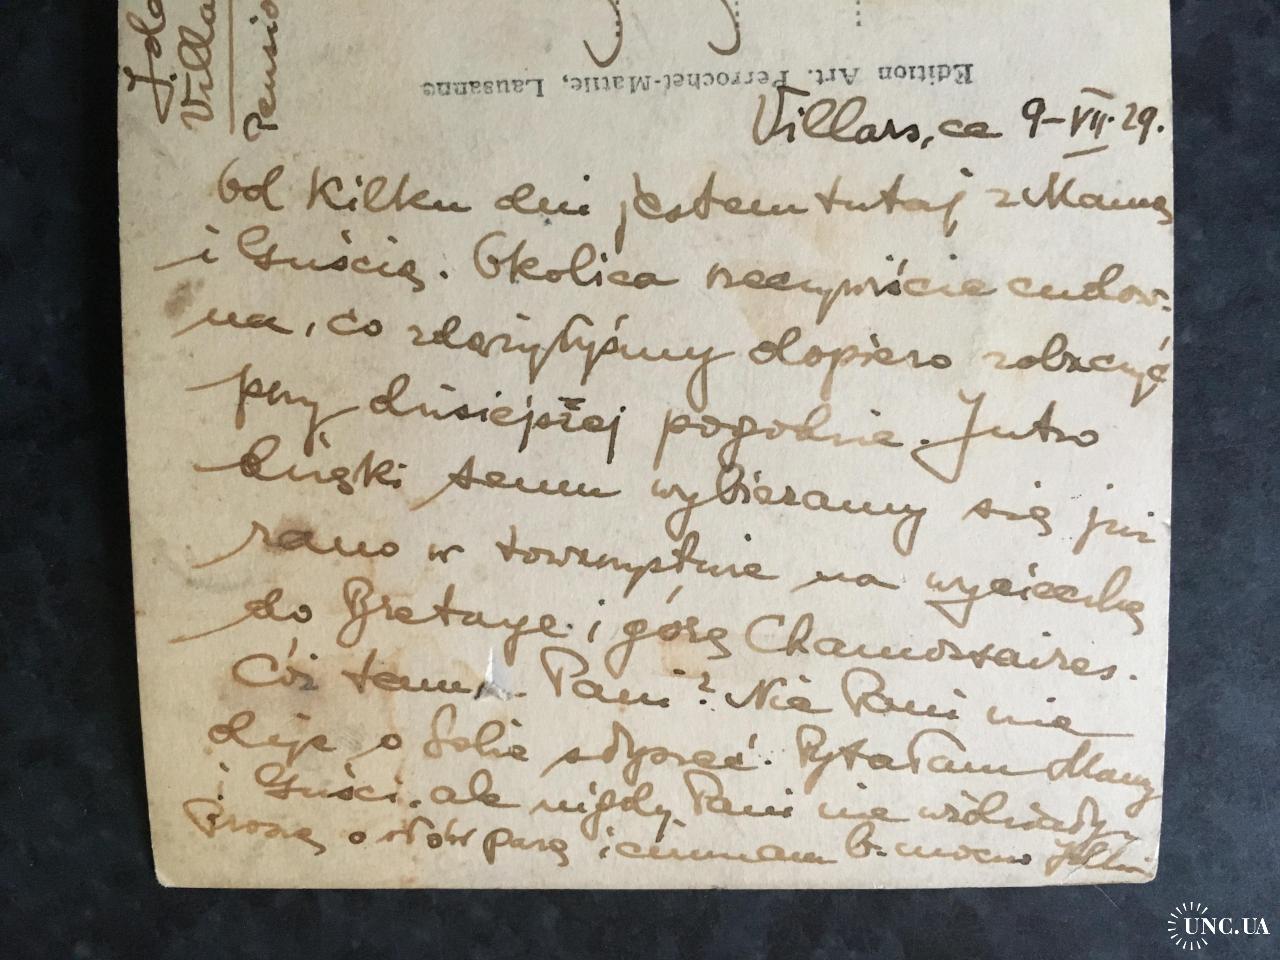 Villa
Pensio
Edition Art. Perrochet-Matile, Lausanne
Villars, ce 9-VII.29.
Od kilku dni jestem tutaj z Mamą
i Gusią. Okolica rzeczywiście cudow-
na, co zdążyłyśmy dopiero zobaczyć
przy dzisiejszej pogodzie. Jutro
dzięki temu wybieramy się już
rano w towarzystwie na wycieczkę
do Bretaye i górę Chamossaires.
Cóż temu Pani? Nic Pani nie
daje o sobie słyszeć. Pytałam Mamy
i Gusi, ale nigdy Pani nie widziały.
Proszę o słów parę i całuję b. mocno
UNC.UA